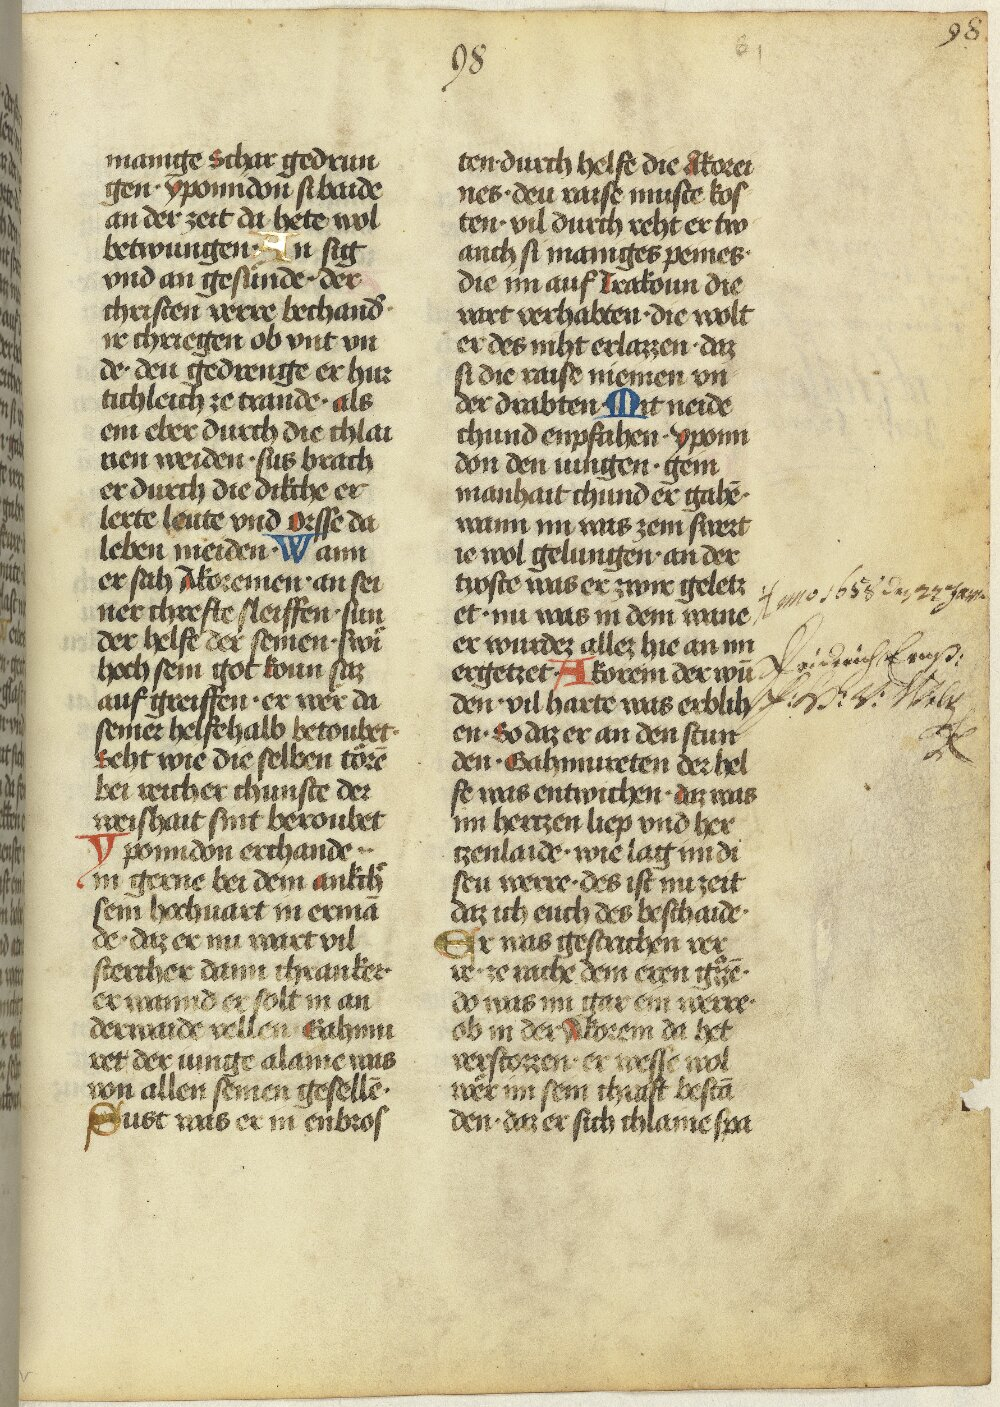 98
98
61
manige schar gedrun
gen · yponidon si baide
an der zeit da hete wol
betwungen · An sig
vnd an gesunde · der
christen verre bechand᷒ ·
ir chriegen ob vnt vn
de · deu gedrenge er hur
tichleich ze trande · als
ein eber durch die chlai
nen weiden · sus brach
er durch die dikche er
lerte leute vnd orsse da
leben meiden · Wann
er sah Akoreinen · an sei
ner chrefte sleiffen · sun
der helfe der seinen · swi
hoch sein got koun saz
auf greiffen · er wer da
seiner helfehalb betoubet ·
seht wie die selben torē
bei reicher chunste der
weishait sint beroubet
Yponidon erchande ··
in gerne bei dem ankch
sein hochuart in ermā
de · daz er nu wart vil
stercher dann chranker ·
er wannd er solt in an
derwaide vellen Gahmu
ret der iunge alaine was
von allen seinen gesellē ·
Sust was er in enbros
ten · durch helfe die Akorei
nes · deu raise muste kos
ten · vil durch reht er tw
anch si maniges peines ·
die im auf Trakoun die
vart verhabten · die wolt
er des niht erlazzen · daz
si die raise niemen vn
der drabten · Mit neide
chund enpfahen · yponi
don den iungen · gein
manhait chund er gabē ·
wann im was zem swert
ie wol gelungen · an der
tyoste was er zwir geletz
et · nu was in dem wane
er wurdez allez hie an im
ergetzet · Akorein der wū
den · vil harte was erblih
en · So daz er an den stun
den · Gahmureten der hel
fe was entwichen · daz was
im hertzen liep vnd her
tzenlaide · wie laig im di
seu werre · des ist nu zeit
daz ich euch des beschaide ·
Er was gestochen ver
re · ze rache dem eren gʼzē ·
do was im gar ein werre ·
ob in der Akorein da het
verstozzen · er wesse wol
wer im sein chraft bestā
den · daz er sich chlaine spa
Anno 1658 den 22 Jan.
Fridrich Ernst: